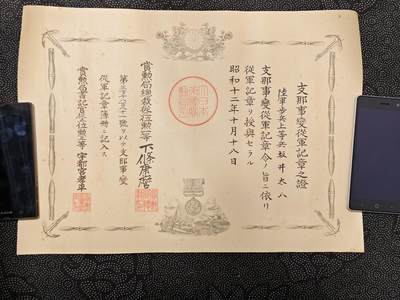 支那事變從軍記章之證
陸軍歩兵上等兵 坂井太八
支那事變從軍記章令ノ旨ニ依リ
從軍記章ヲ授與セラル
昭和十二年十月十八日
賞勲局總裁從 位勲 等 下條康麿
號ヲ以テ支那事變
從軍記章簿冊ニ記入ス
賞勲局書記官 位勲 等 宇都宮孝平